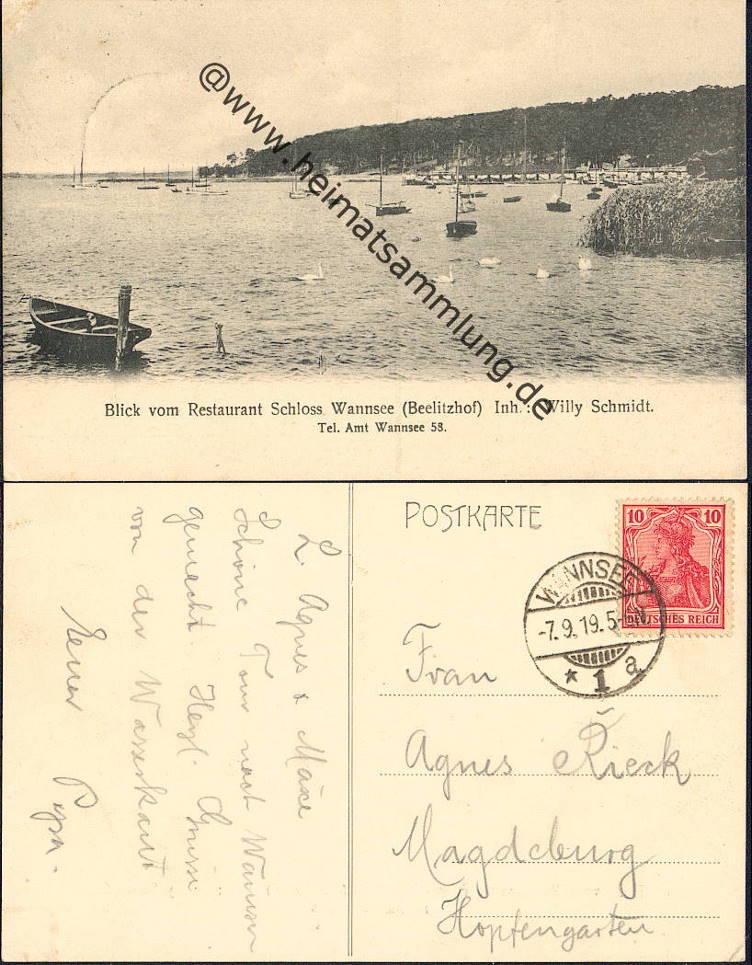 @www.heimatsammlung.de
Blick vom Restaurant Schloss Wannsee (Beelitzhof) Inh.: Willy Schmidt.
Tel. Amt Wannsee 58.
L. Agnes & Maxe
Schöne Tour nach Wannsee
gemacht. Herzl. Grüsse
von der Wasserkant
Euer Papa.
POSTKARTE
10 10
DEUTSCHES REICH
WANNSEE
-7.9.19.5-6N.
* 1 a
Frau
Agnes Rieck
Magdeburg
Hopfengarten